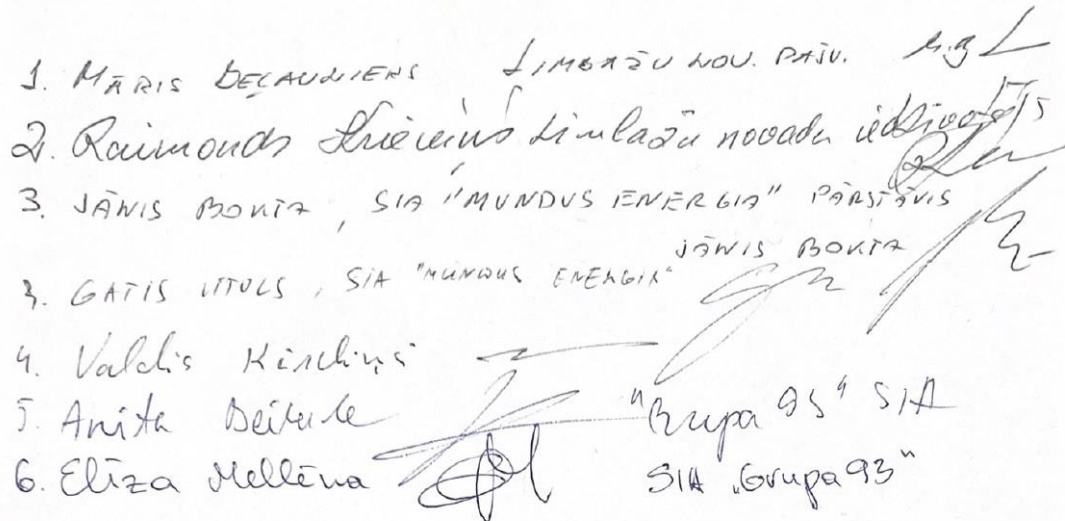 1. MĀRIS BEĻAUNIEKS LIMBAŽU NOV. PAŠV.
2. Raimonds Limbažu novada
3. JĀNIS BOKTA, SIA "MUNDUS ENERGIA" PĀRSTĀVIS
JĀNIS BOKTA
3. GATIS VITOLS, SIA "MUNDUS ENERGIA"
4. Valdis
5. Anita "Grupa 93" SIA
6. Elīza Mellēna SIA "Grupa93"